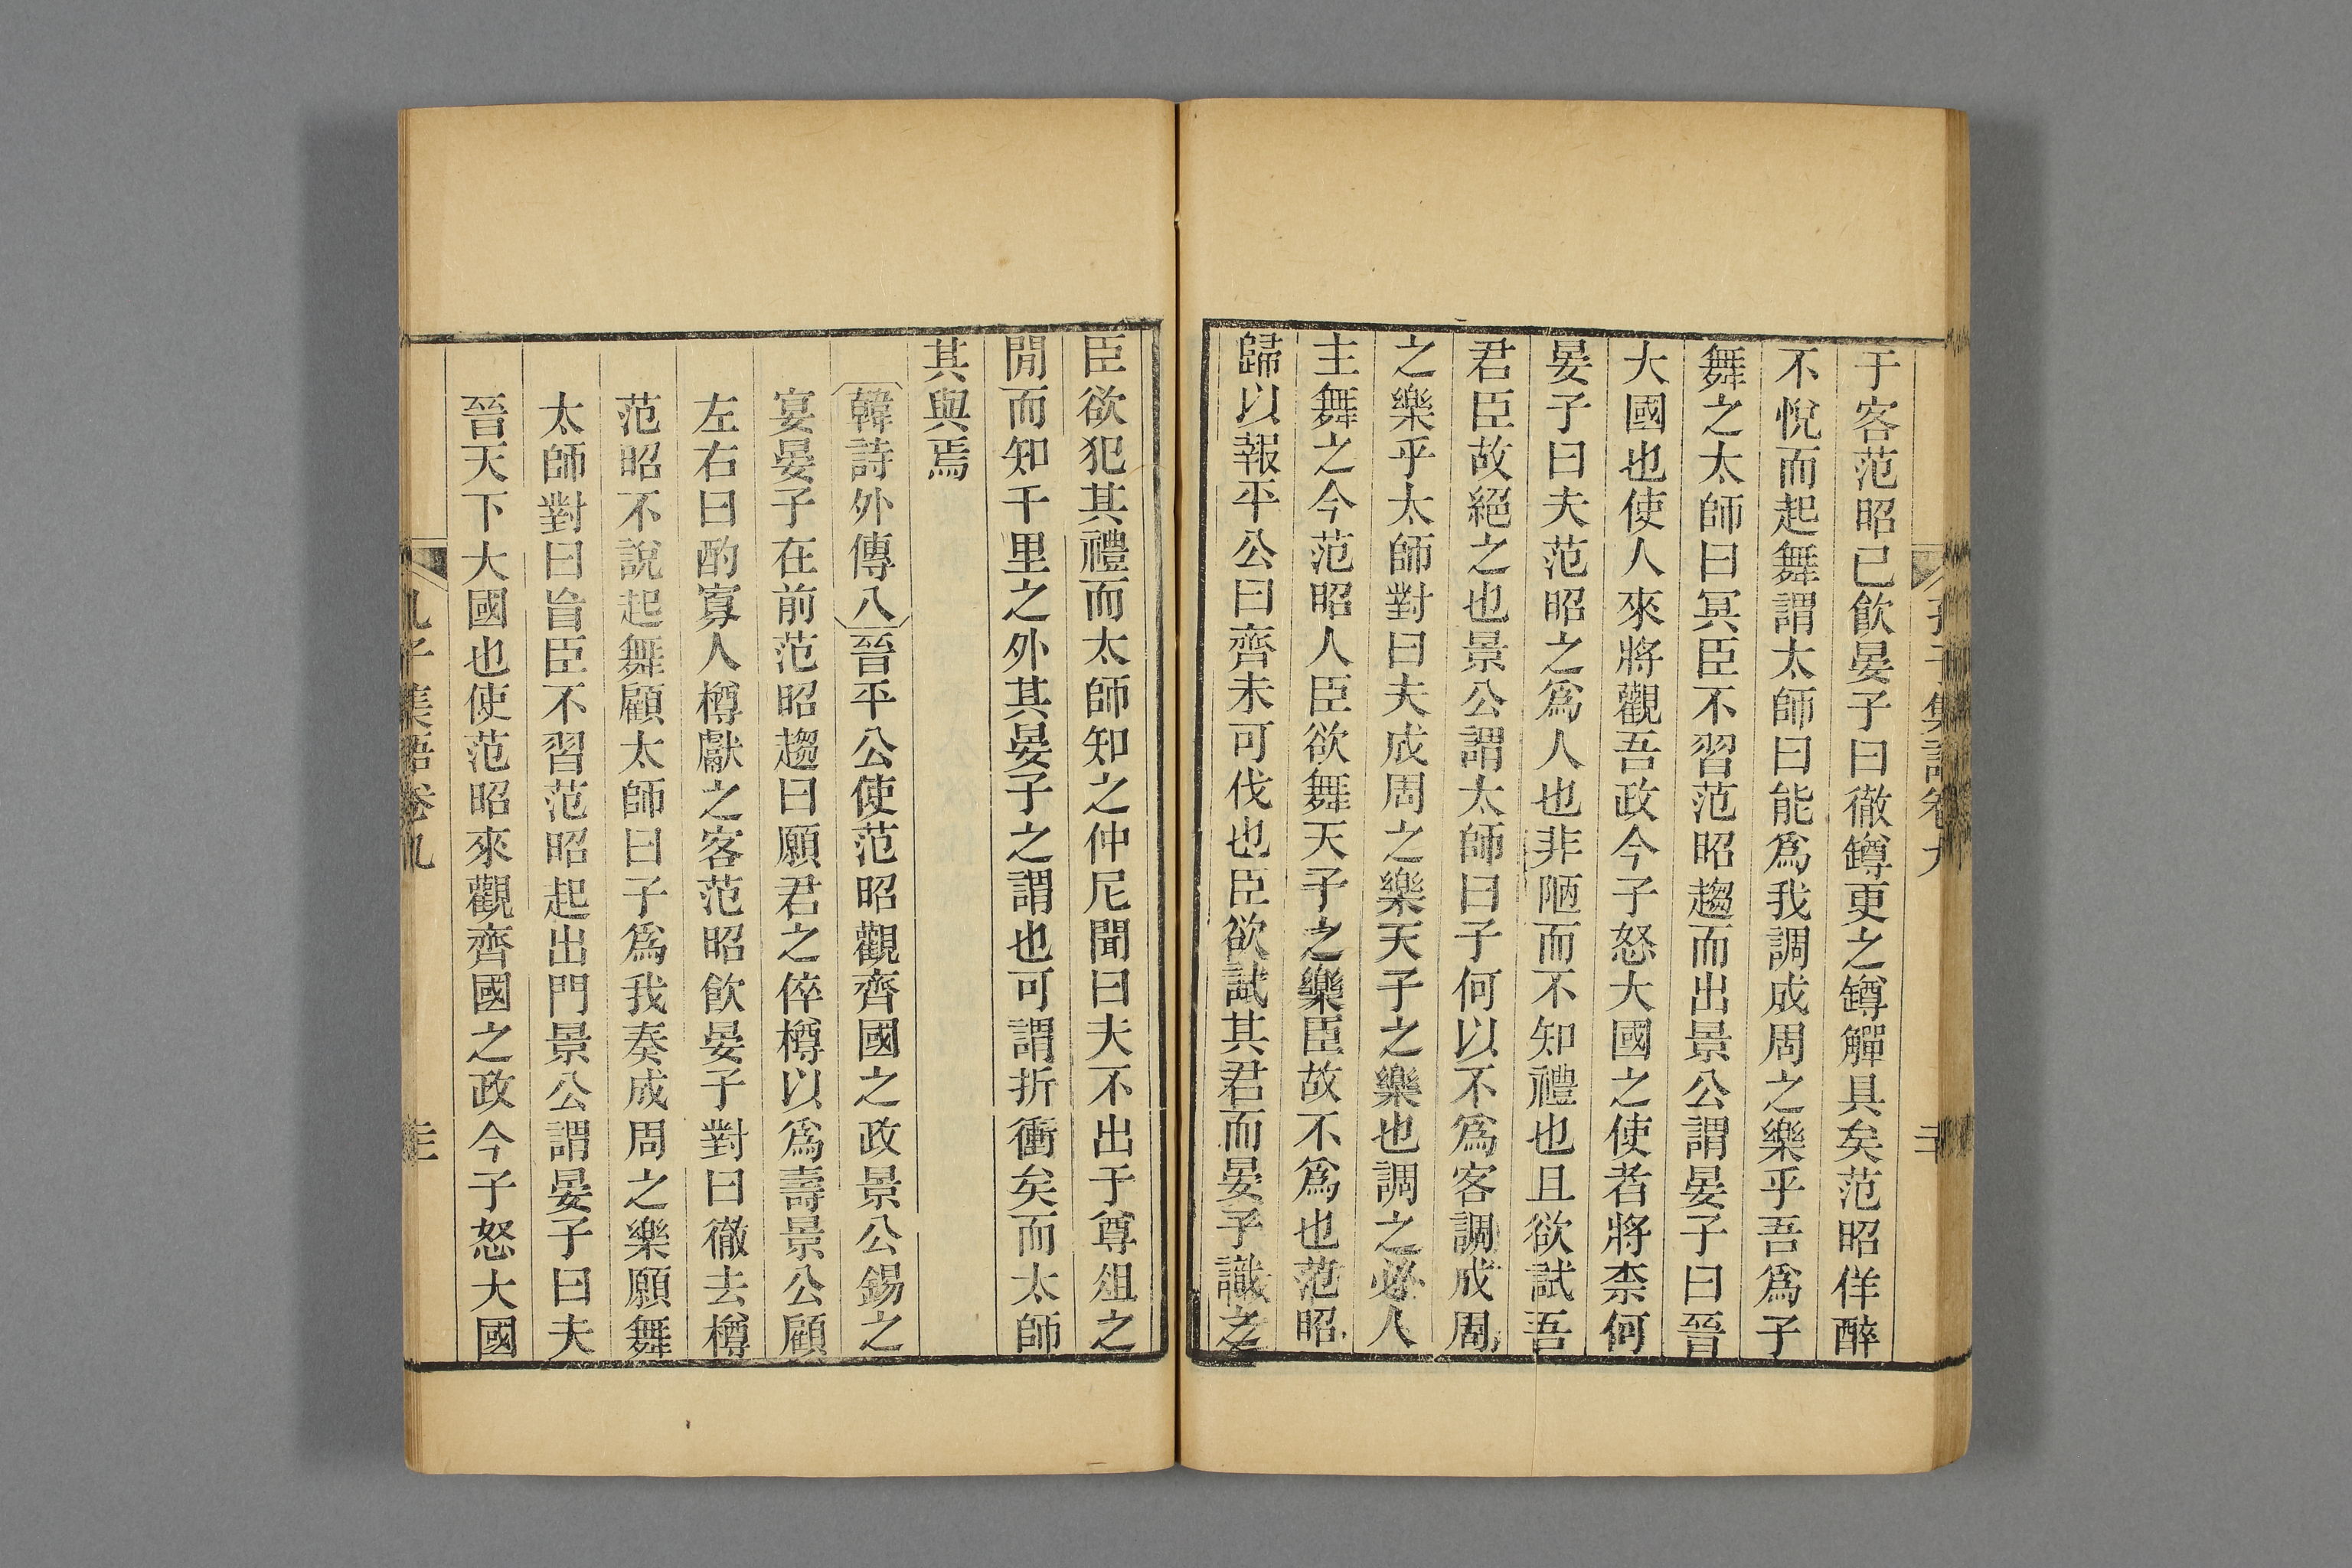 孔子集語卷九
二十
于客范昭已飮晏子曰徹罇更之罇觶具矣范昭佯醉
不悅而起舞謂太師曰能爲我調成周之樂乎吾爲子
舞之太師曰冥臣不習范昭趨而出景公謂晏子曰晉
大國也使人來將觀吾政今子怒大國之使者將柰何
晏子曰夫范昭之爲人也非陋而不知禮也且欲試吾
君臣故絕之也景公謂太師曰子何以不爲客調成周
之樂乎太師對曰夫成周之樂天子之樂也調之必人
主舞之今范昭人臣欲舞天子之樂臣故不爲也范昭
歸以報平公曰齊未可伐也臣欲試其君而晏子識之
臣欲犯其禮而太師知之仲尼聞曰夫不出于尊俎之
閒而知千里之外其晏子之謂也可謂折衝矣而太師
其與焉
韓詩外傳八晉平公使范昭觀齊國之政景公錫之
宴晏子在前范昭趨曰願君之倅樽以爲壽景公顧
左右曰酌寡人樽獻之客范昭飮晏子對曰徹去樽
范昭不說起舞顧太師曰子爲我奏成周之樂願舞
太師對曰盲臣不習范昭起出門景公謂晏子曰夫
晉天下大國也使范昭來觀齊國之政今子怒大國
孔子集語卷九